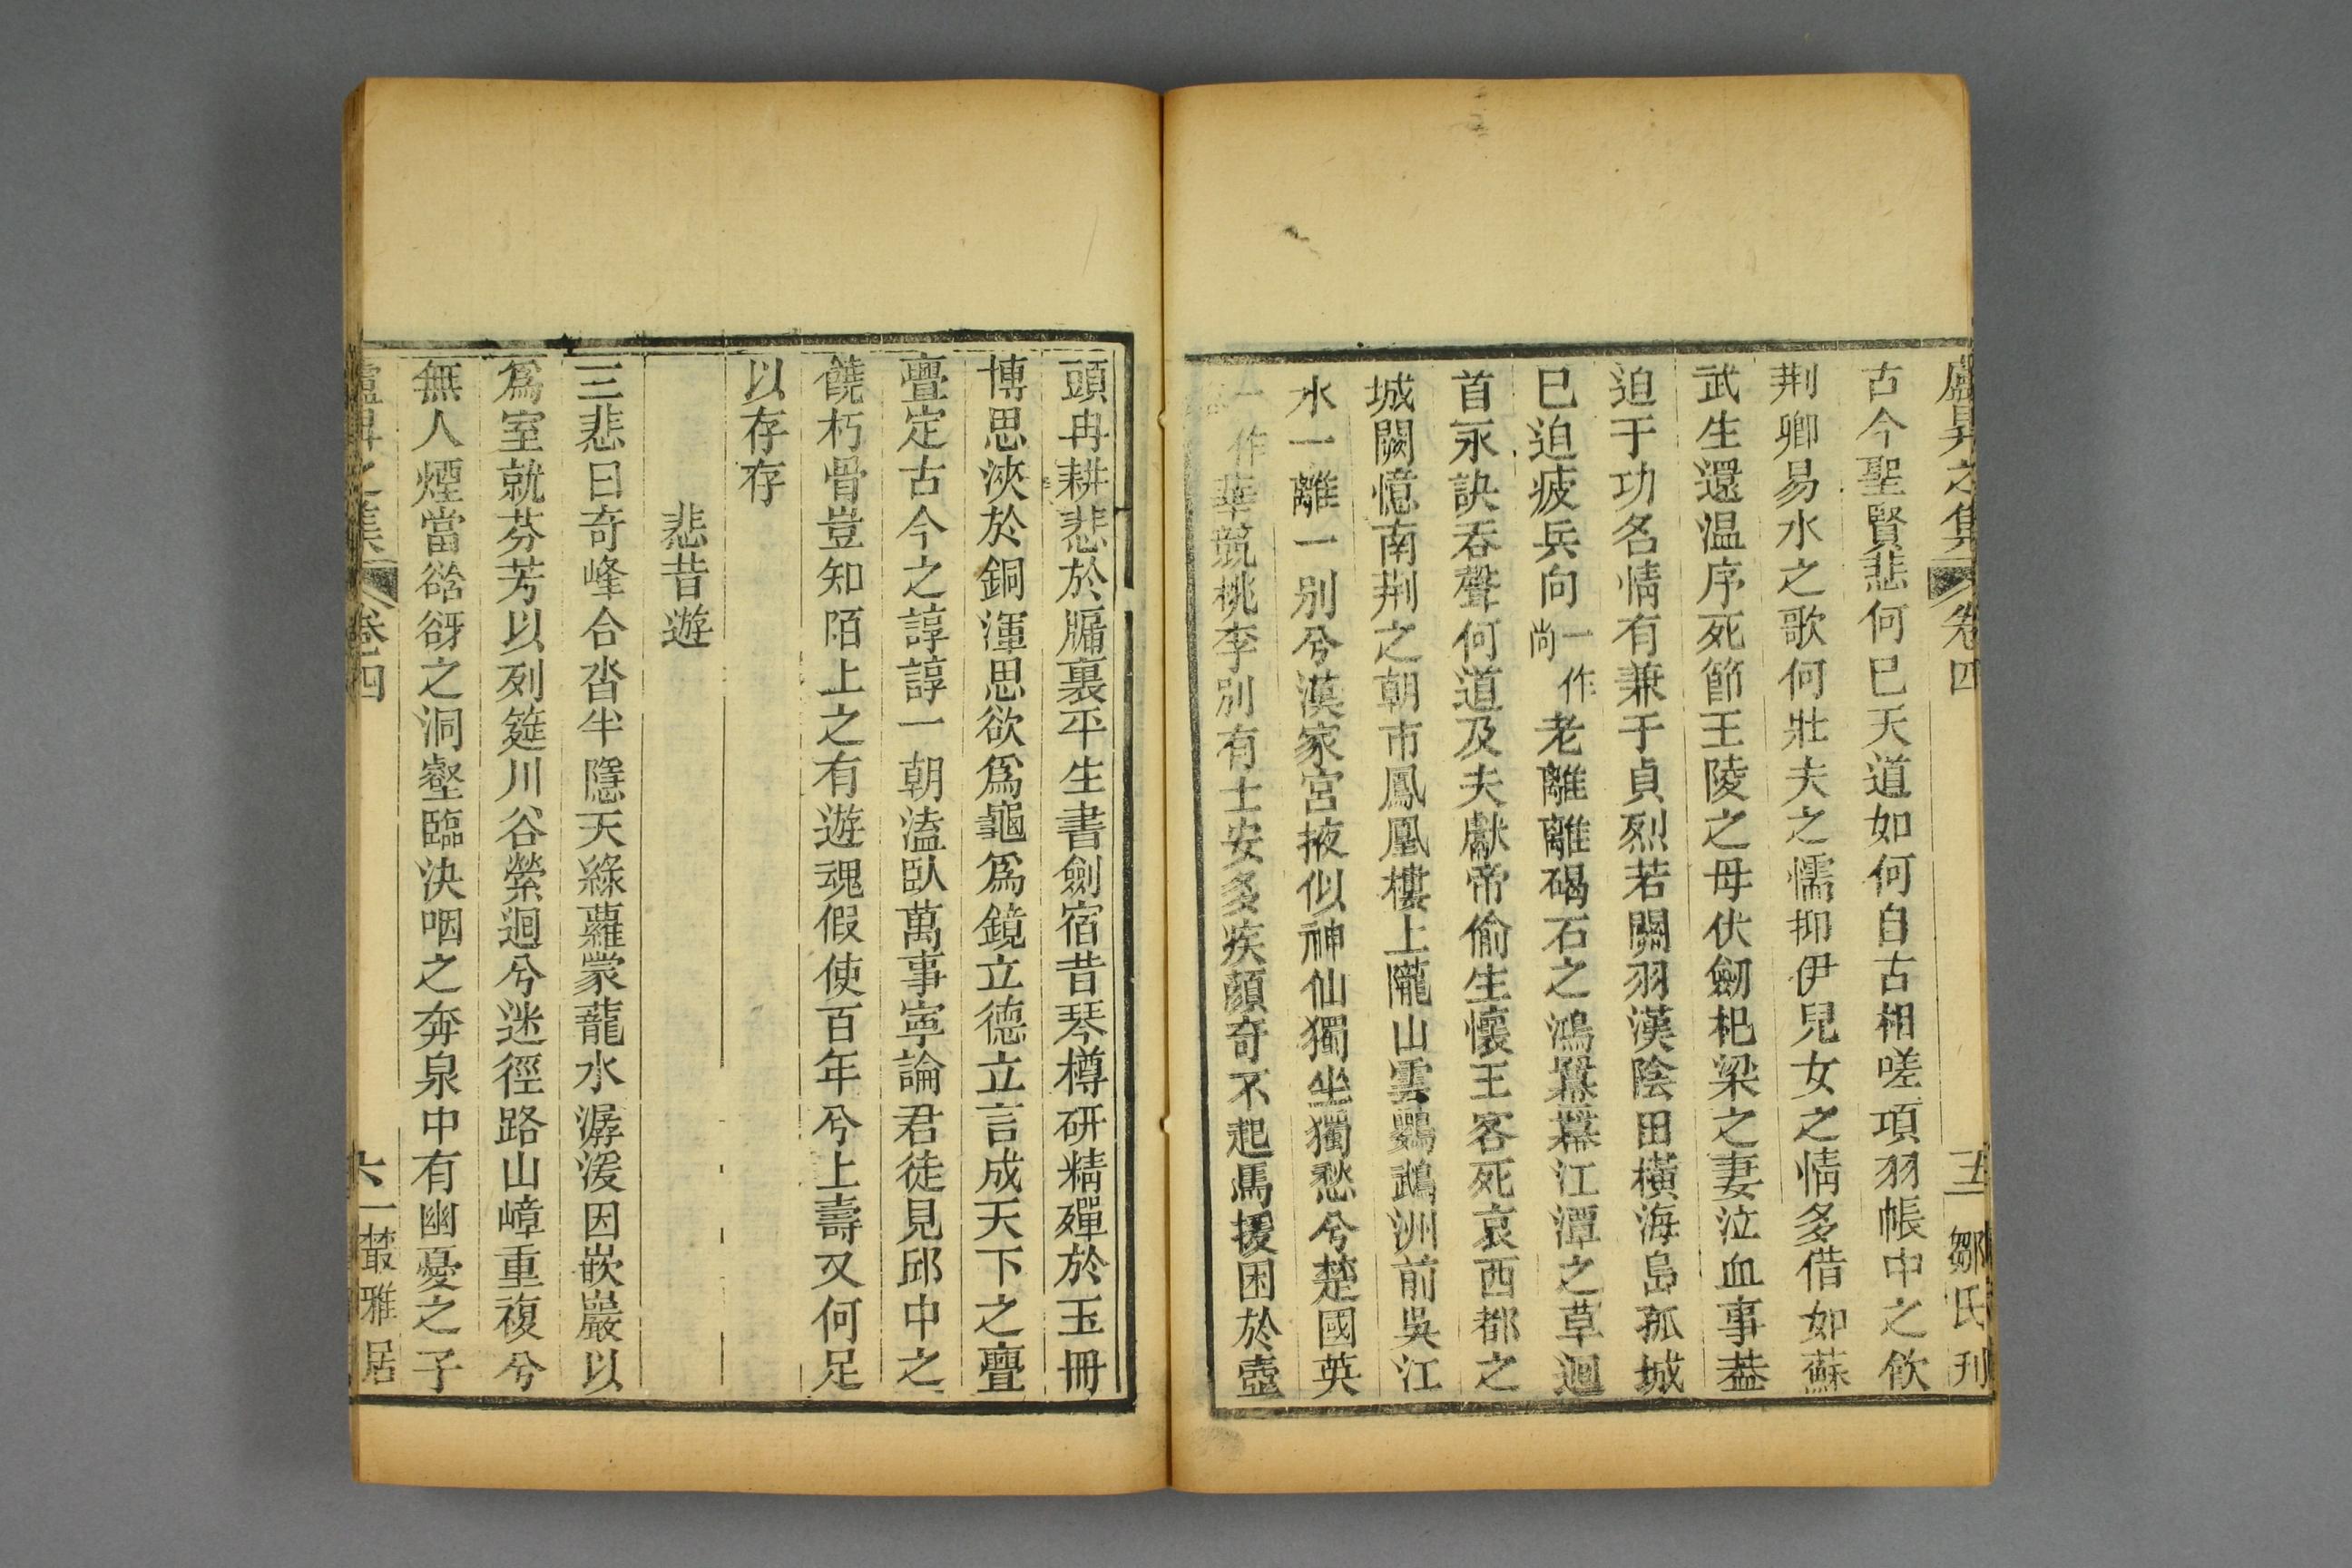 盧昇之集 卷四 五 鄒氏刊
古今聖賢悲何已天道如何自古相嗟項羽帳中之飲
荆卿易水之歌何壯夫之懦抑伊兒女之情多借如蘇
武生還温序死節王陵之母伏劒杞梁之妻泣血事葢
迫于功名情有兼于貞烈若關羽漢陰田橫海島孤城
已迫疲兵向一作尚老離離碣石之鴻羃羃江潭之草迴
首永訣吞聲何道及夫獻帝偷生懷王客死哀西都之
城闕憶南荆之朝市鳳凰樓上隴山雲鸚鵡洲前吳江
水一離一别兮漢家宮掖似神仙獨坐獨愁兮楚國英
一作華競桃李別有士安多疾顔奇不起馬援困於壺
頭冉耕悲於牖裏平生書劍宿昔琴樽研精殫於玉冊
博思浹於銅渾思欲爲龜爲鏡立德立言成天下之亹
亹定古今之諄諄一朝溘臥萬事寧論君徒見邱中之
饒朽骨豈知陌上之有遊魂假使百年兮上壽又何足
以存存
悲昔遊
三悲曰奇峰合沓半隱天綠蘿蒙蘢水潺湲因嵌巖以
爲室就芬芳以列筵川谷縈迴兮迷徑路山嶂重複兮
無人煙當谽谺之洞壑臨決咽之奔泉中有幽憂之子
盧昇之集 卷四 六 叢雅居